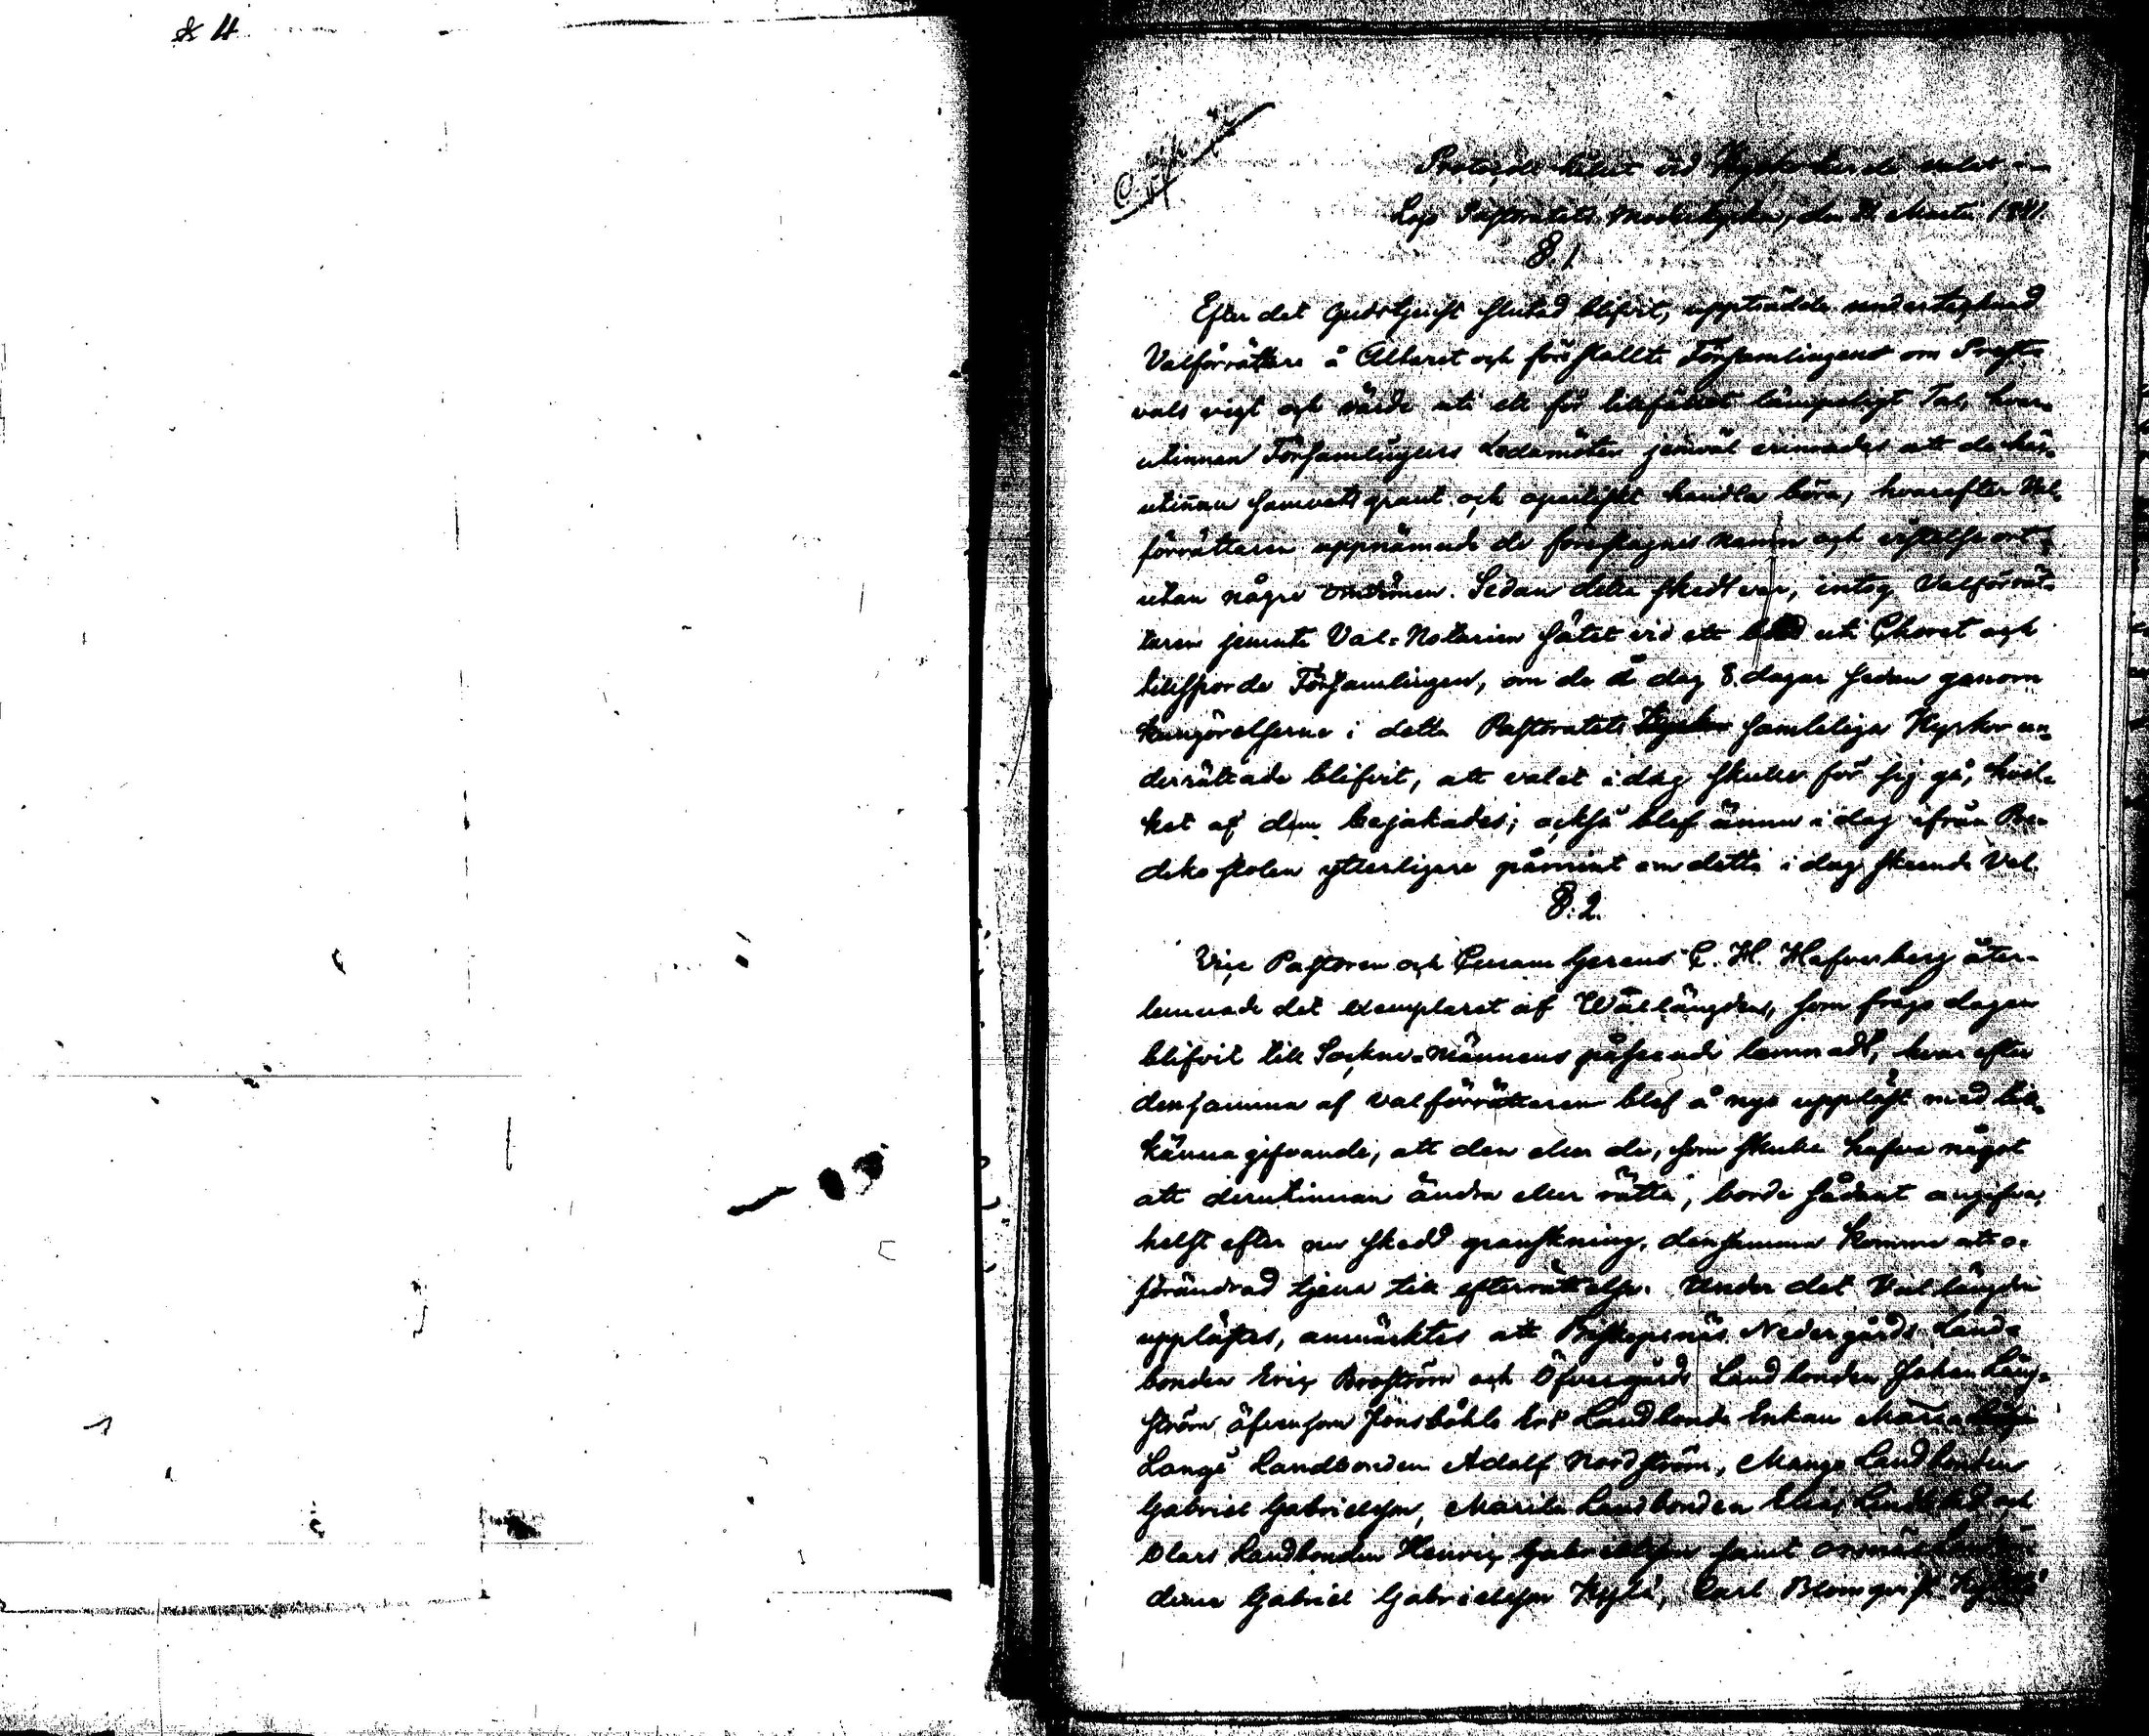 & 4
Protocoll hållet vid Kyrkoherde valet i
Lojo Pastoratets Moderkyrka, den 21 Martii 1841.
§. 1.
Efter det Gudstjenst slutad blifvit, uppträdde undertecknad
Valförrättare å Altaret och förestallte Församlingens om Preste
vals vigt och värde uti ett för tillfället lämpeligt Tal, hvar-
utinnan Församlingens Ledamöter jemväl erinrades att de här-
utinnan samvetsgrant och opartiskt handla böra, hvarefter Val-
förrättaren uppnämnde de föreslagnes namn och vistelse ort,
utan några omdömen. Sedan detta skedt var, intog Valförrät-
taren jemnte Val-Notarien sätet vid ett bord uti Choret och
tillsporde Församlingen, om de i dag 8. dagar sedan genom
kungörelserne i detta Pastoratets samteliga Kyrkor un-
derrättade blifvit, att valet i dag skulle för sig gå, hvil-
ket af dem bejakades; också blef ännu i dag ifrån Pre-
dikostolen ytterligare påmint om detta i dag skeende Val.
§. 2.
Vice Pastoren och Curam Gerens C. H. Hafverberg åter-
lemnade det exemplaret af Wallängden, som fråge dagen
blifvit till Sockne-Männens påseende lemnadt, hvarefter
densamma af Valförrättaren blef å nyo uppläst med till-
känna gifvande, att den eller de, som skulle hafva något
att derutinnan ändra eller rätta, borde sådant angifva,
helst efter nu skedd granskning, densamma komme att o-
förändrad tjena till efterrättelse. Under det Vallängden
upplästes, anmärktes att Biskopsnäs Nedergårds Land-
bonden Eric Broström och Öfvergårds Landbonden Johan Läng-
ström äfvensom Jönsböhle Ers Landbonde Enkan Maria
Långs Landbonden Adolf Nordström, Mangs Landbonden
Gabriel Gabrielsson, Marila Landbonden Elias Lindstedt och
Olars Landbonden Henric Gabrielsson samt
derne Gabriel Gabrielsson Kylä, Carl Blomqvist